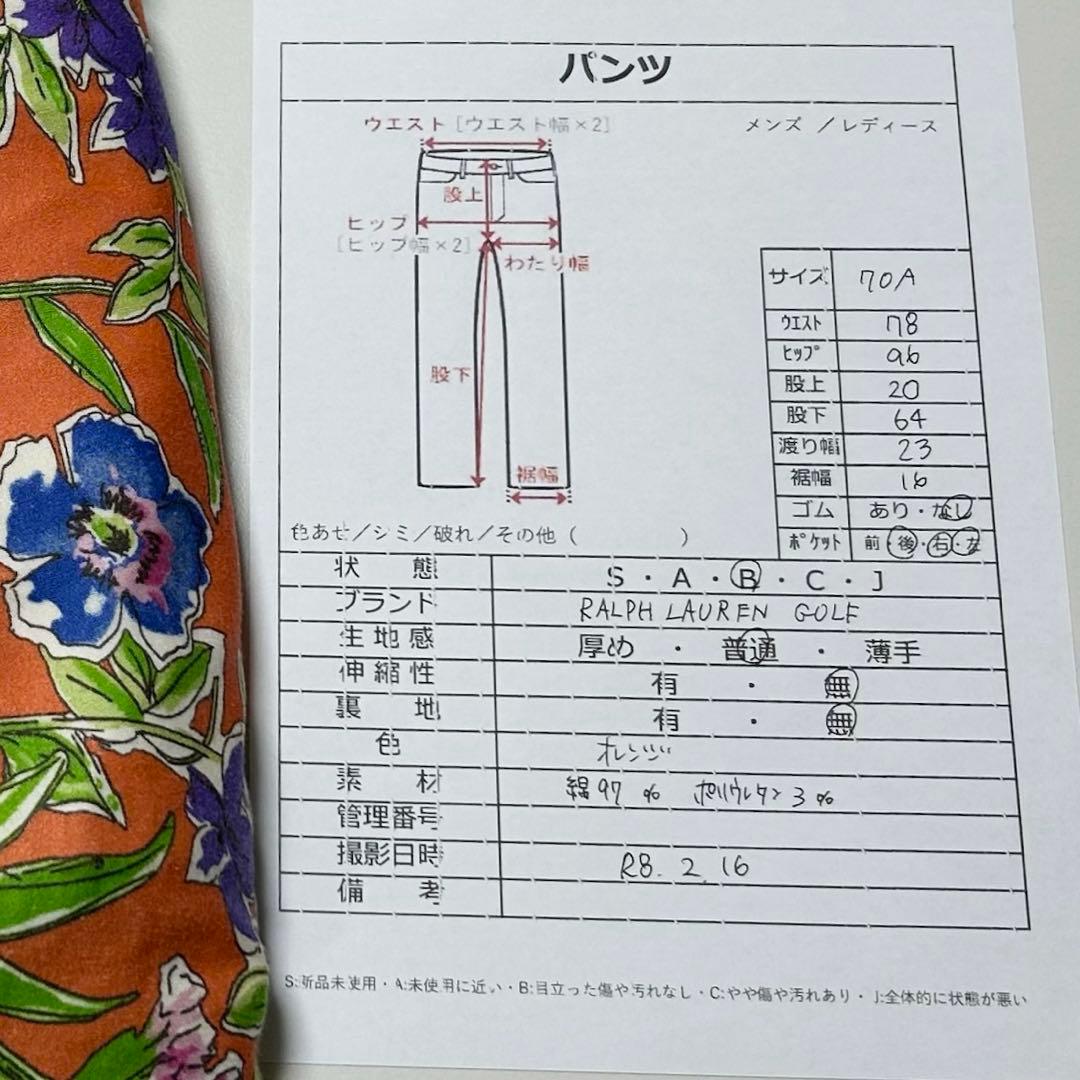 パンツ
ウエスト [ウエスト幅×2]
メンズ ／レディース
股上
ヒップ
[ヒップ幅×2]
わたり幅
股下
裾幅
サイズ 70A
ウエスト 78
ヒップ 96
股上 20
股下 64
渡り幅 23
裾幅 16
ゴム あり・なし
ポケット 前・後・右・左
色あせ／シミ／破れ／その他（ ）
状態 S・A・B・C・J
ブランド RALPH LAUREN GOLF
生地感 厚め ・ 普通 ・ 薄手
伸縮性 有 ・ 無
裏地 有 ・ 無
色 オレンジ
素材 綿97% ポリウレタン3%
管理番号
撮影日時 R8. 2. 16
備考
S:新品未使用・A:未使用に近い・B:目立った傷や汚れなし・C:やや傷や汚れあり・J:全体的に状態が悪い